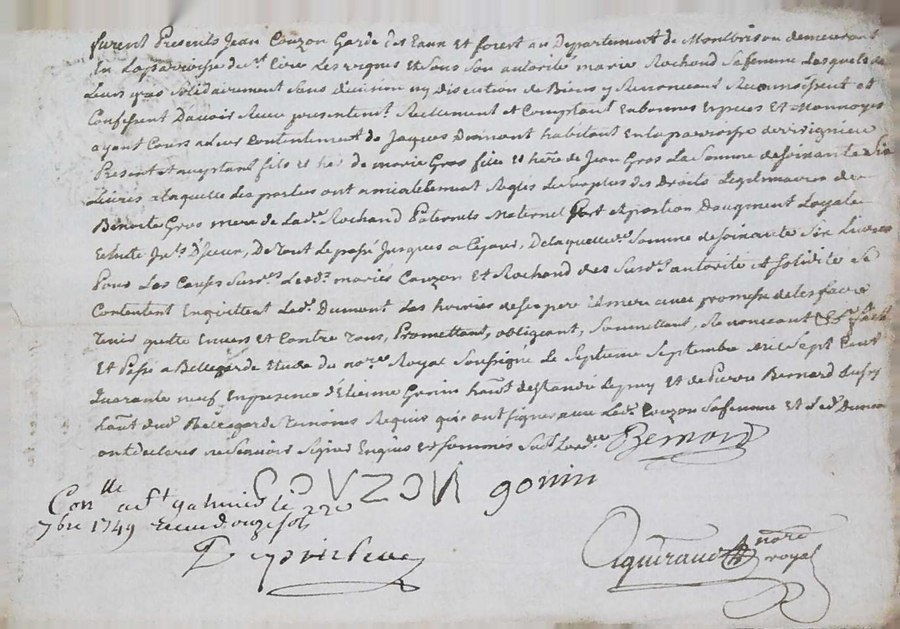 furent Presents Jean Couzon Garde des Eaux et forest au Departement de Montbrison demeurant
En La parroisse de st Cire Les vignes Et sous son autorité marie Rochand sa femme Lesquels de
Leurs gres solidairement sans division ny discution de Biens y Renonceant Reconnoissent et
Confessent Davoir Receu presentemt Reellement et Comptant En bonnes Especes Et Monnoyes
ayant Cours a Leur Contentement de Jaques Dumont habitant En La parroisse de
Present et acceptant fils et her de marie Gros fille et here de Jean Gros La somme de soixante six
Livres a laquelle des parties ont amiablement Reglés Le surplus des Droits Legitimaires de
Benoite Gros mere de Lade Rochand Paternels Maternel Part et portion Daugment
Echute De tout Le passé Jusques a Ce jour, De laquelle somme de soixante six Livres
Pour Les Causes susd Lesd mariés Couzon Et Rochand des susd autorité et solidité se
Contentent En quittent Led Dumont Les hoiries de ses pere Et mere avec promesse de les faire
tenir quitte Envers et Contre tous, Promettant, obligeant, soumettant, Renonceant fait
Et Passé a Bellegarde Etude du nore Royal soussigné Le septieme septembre mil sept Cent
quarante neuf En presence d'Etienne Gonin habt de st andré Le puy Et de Pierre Bernard
habt dud Bellegarde temoins Requis qui ont signé avec Led Couzon sa femme et Led Dumont
ont declarés ne scavoir signer Enquis et sommés
Bernard
COUZON gonin
Con lle a st galmier le 220
7bre 1749 Receu douze sols
nore
royal